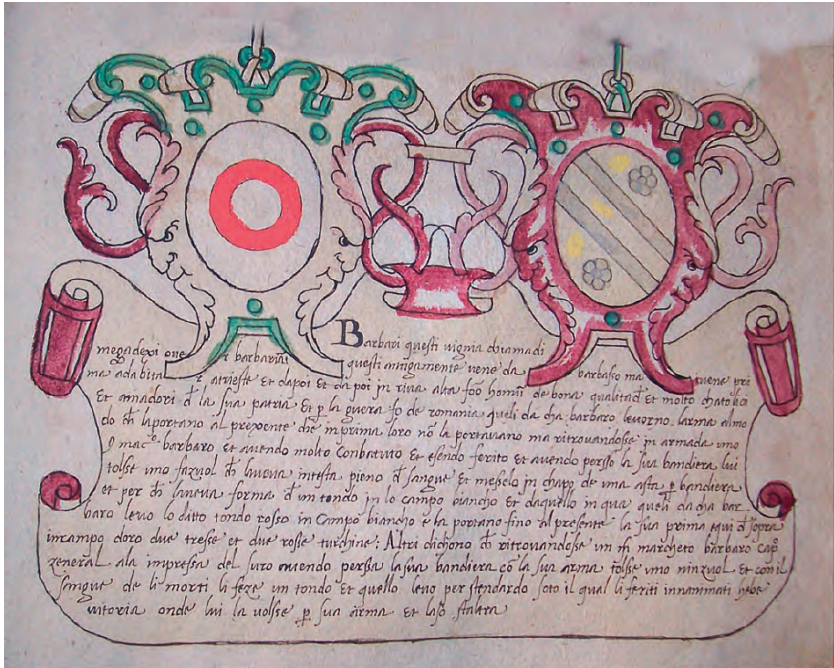 Barbari questi vignia chiamadi
megadexi over barbarini questi antigamente vene da barbasso ma vene pri
ma ad abitar i atrieste et dapoi et da poi in riva alta foo homini de bona qualitad et molto chatolici
et amadori d la sua patria et p la guera fo de romania queli da cha barbaro levorno larma al mo
do ch laportano al prexente che in prima loro nō la portavano ma ritrovandosse in armada uno
macº barbaro et avendo molto conbatuto et esendo ferito et avendo persso la sua bandiera lui
tolsse uno fazuol ch laveva intesta pieno d sangue et messelo in chapo de una asta p bandiera
et per ch laveva forma d un tondo in lo campo biancho et daquello in qua queli da cha bar
baro levo lo ditto tondo rosso in campo biancho e la portano fino al presente la sua prima equi d sopra
incampo doro due tresse et due rosse turchine: Altri dichono ch ritrovandosse un marcheto barbaro capº
zeneral ala impressa del suro avendo perssa la sua bandiera cō la sua arma tolsse uno ninzuol et con il
sangue de li morti li feze un tondo et quello levo per stendardo soto il qual li feriti innanimati hebe
vitoria onde lui la volsse p sua arma et lasō staltra